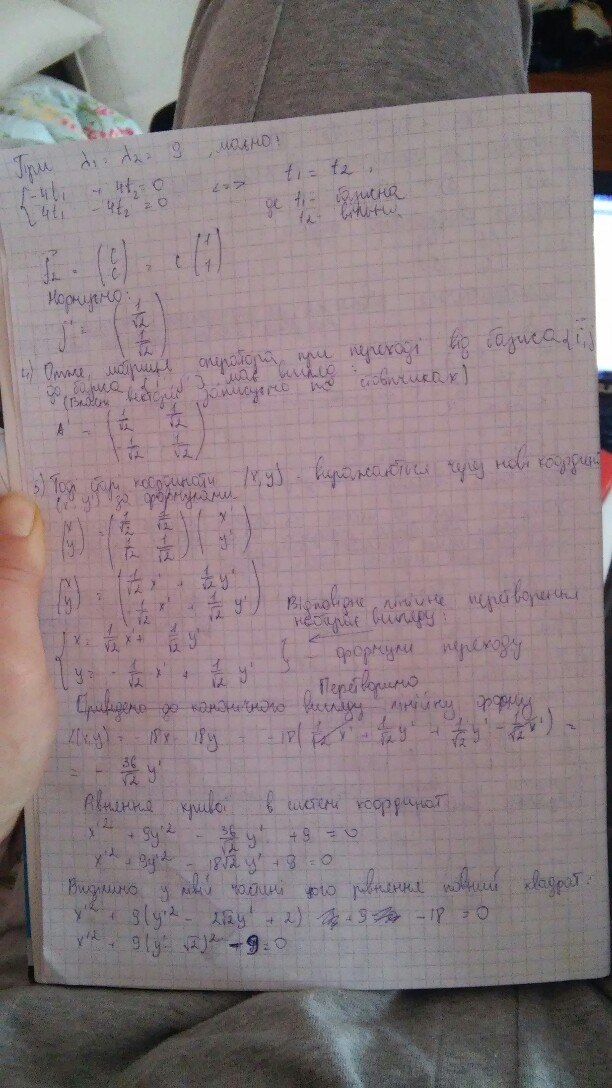 При λ₁ = λ₂ = 9, маємо:
{ -4t₁ + 4t₂ = 0
4t₁ - 4t₂ = 0 <=> t₁ = t₂,
де t₁ - базисна
t₂ - вільна
f₂ = (c c) = c (1 1)
Нормуємо:
j' = (1/√2 1/√2)
4) Отже, матриця оператора при переході від базиса {i, j}
до базиса {i', j'} має вигляд:
(власні вектори записуємо по стовпчиках)
A' = (1/√2 1/√2
1/√2 1/√2)
5) Тоді старі координати (x, y) - виражаються через нові координ
(x', y') за формулами
(x y) = (1/√2 1/√2 1/√2 1/√2) (x' y')
(x y) = (1/√2 x' + 1/√2 y'
-1/√2 x' + 1/√2 y')
Відповідне лінійне перетворення
набуває вигляду:
{ x = 1/√2 x' + 1/√2 y'
y = -1/√2 x' + 1/√2 y' } - формули переходу
Перетворимо
Приведемо до канонічного вигляду лінійну форму
L(x,y) = -18x - 18y = -18(1/√2 x' + 1/√2 y' + 1/√2 y' - 1/√2 x') =
= - 36/√2 y'
Рівнення кривої в системі координат
x'² + 9y'² - 36/√2 y' + 9 = 0
x'² + 9y'² - 18√2 y' + 9 = 0
Виділимо у лівій частині цього рівнення повний квадрат:
x'² + 9(y'² - 2√2 y' + 2) + 9 - 18 = 0
x'² + 9(y' - √2)² - 9 = 0